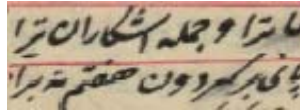 ما ترا و جمله اشکاران ترا
پای بر گردون هفتم نه برا